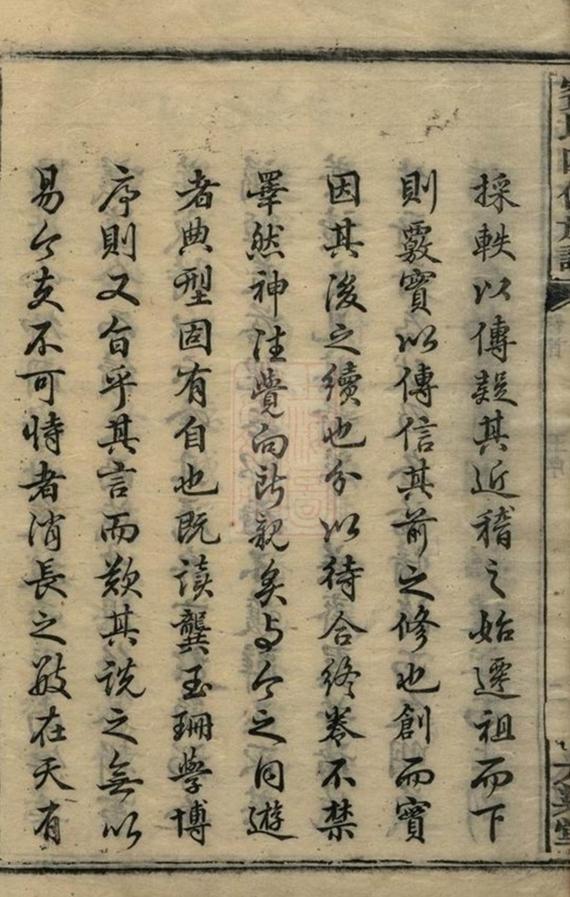 採軼以傳疑其近稽之始遷祖而下
則覈實以傳信其前之修也創而實
因其後之續也分以待合終卷不禁
睪然神注覺向所親炙与今之同遊
者典型固有自也既讀龔玉珊學博
序則又旨乎其言而歎其説之無以
易今夫不可恃者消長之数在天有